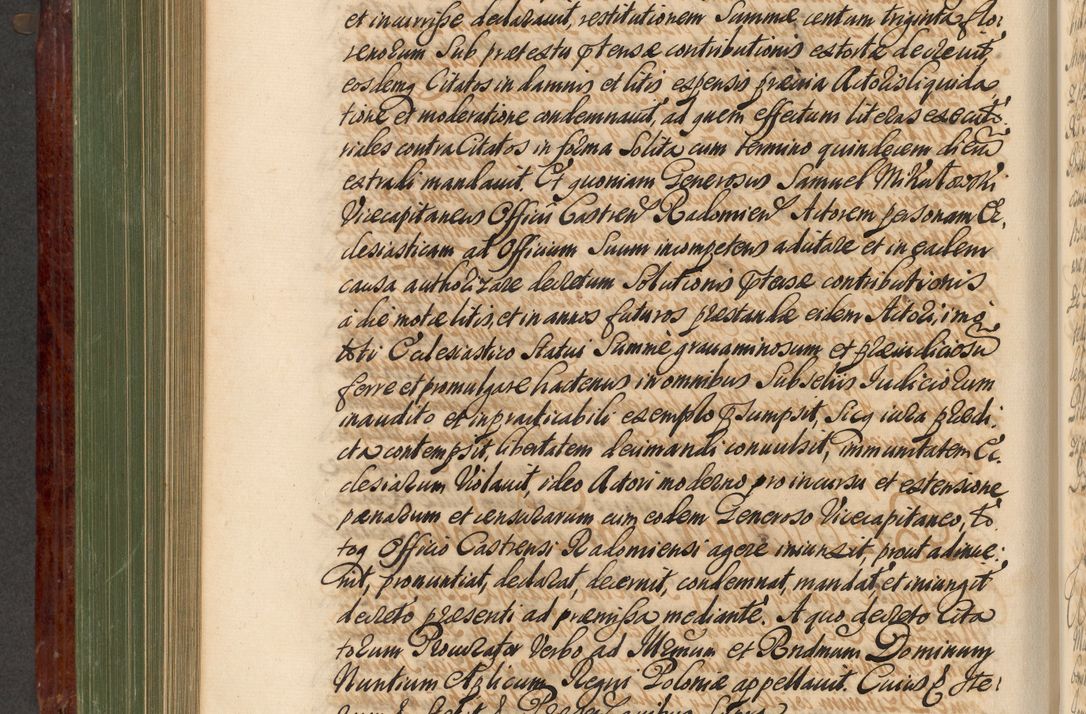 et incurrisse declaravit, restitutionem Summæ centum triginta flo:
renorum sub prætextu ptensæ contributionis extortæ decrevit,
eosdemq Citatos in damnis et litis expensis prævia Actoris liquida,
tione et moderatione condemnavit, ad quem effectum literas executo:
riales contra Citatos in forma solita cum termino quindecem dierũ
extradi mandavit. Et quoniam Generosus Samuel Mikułowski
Vicecapitaneus Officii Castren Radomien Actorem personam Ec,
clesiasticam ad Officium Suum incompetens aditare et in eadem
causa authorizare decretum Solutionis ptensæ contributionis
à die motæ litis, et in annos futuros præstandæ eidem Actori, imo
toti Ecclesiastico Statui Summè gravaminosum et præiudiciosũ
ferre et promulgare hactenus in omnibus Subselliis Iudiciorum
inaudito et impracticabili exemplo psumpsit, Sicq iura prædi:
cta contempsit, libertatem decimandi convulsit, immunitatem Ec:
clesiarum Violavit, ideo Actori moderno pro incursu et extensione
pænarum et censurarum cum eodem Generoso Vicecapitaneo, to
toq Officio Castrensi Radomiensi agere iniunxit, prout adinve:
nit, pronuntiat, declarat, decernit, condemnat, mandat, et iniungit
decreto præsenti ad præmissa mediante. A quo decreto Cita
torum Procurator Verbo ad Illrmum et Rndmum Dominum
Nuntium Aplicum Regni Poloniæ appellavit. Cuius & Ite: